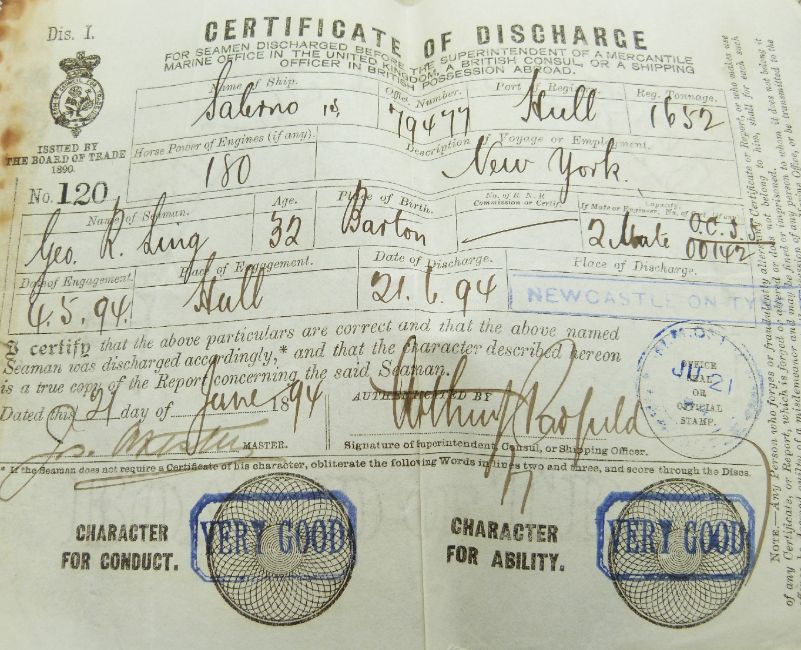 Dis. I.
CERTIFICATE OF DISCHARGE
FOR SEAMEN DISCHARGED BEFORE THE SUPERINTENDENT OF A MERCANTILE
MARINE OFFICE IN THE UNITED KINGDOM, A BRITISH CONSUL, OR A SHIPPING
OFFICER IN BRITISH POSSESSION ABROAD.
ISSUED BY
THE BOARD OF TRADE
1890
No. 120
Name of Ship. Offici. Number. Port of Registry. Reg. Tonnage.
Salerno 79477 Hull 1652
Horse Power of Engines (if any). Description of Voyage or Employment.
180 New York.
Name of Seaman. Age. Place of Birth. No. of R. N. R. Commission or Certif. Capacity. If Mate or Engineer, No. of
Geo. R. Ling 32 Barton 2 Mate O.C.S.S. 00142
Date of Engagement. Place of Engagement. Date of Discharge. Place of Discharge.
4.5.94. Hull 21.6.94 NEWCASTLE ON TY
I certify that the above particulars are correct and that the above named
Seaman was discharged accordingly,* and that the character described hereon
is a true copy of the Report concerning the said Seaman.
Dated this 21 day of June 1894 AUTHENTICATED BY
Arthur Padfield
MASTER. Signature of Superintendent, Consul, or Shipping Officer.
OFFICE
SEAL
OR
OFFICIAL
STAMP.
JU 21
* If the Seaman does not require a Certificate of his character, obliterate the following Words in lines two and three, and score through the Discs.
CHARACTER
FOR CONDUCT.
VERY GOOD
CHARACTER
FOR ABILITY.
VERY GOOD
NOTE.—Any Person who forges or fraudulently alters any Certificate or Report, or who makes use
of any Certificate, or Report, which is forged or altered or does not belong to him, shall for each such